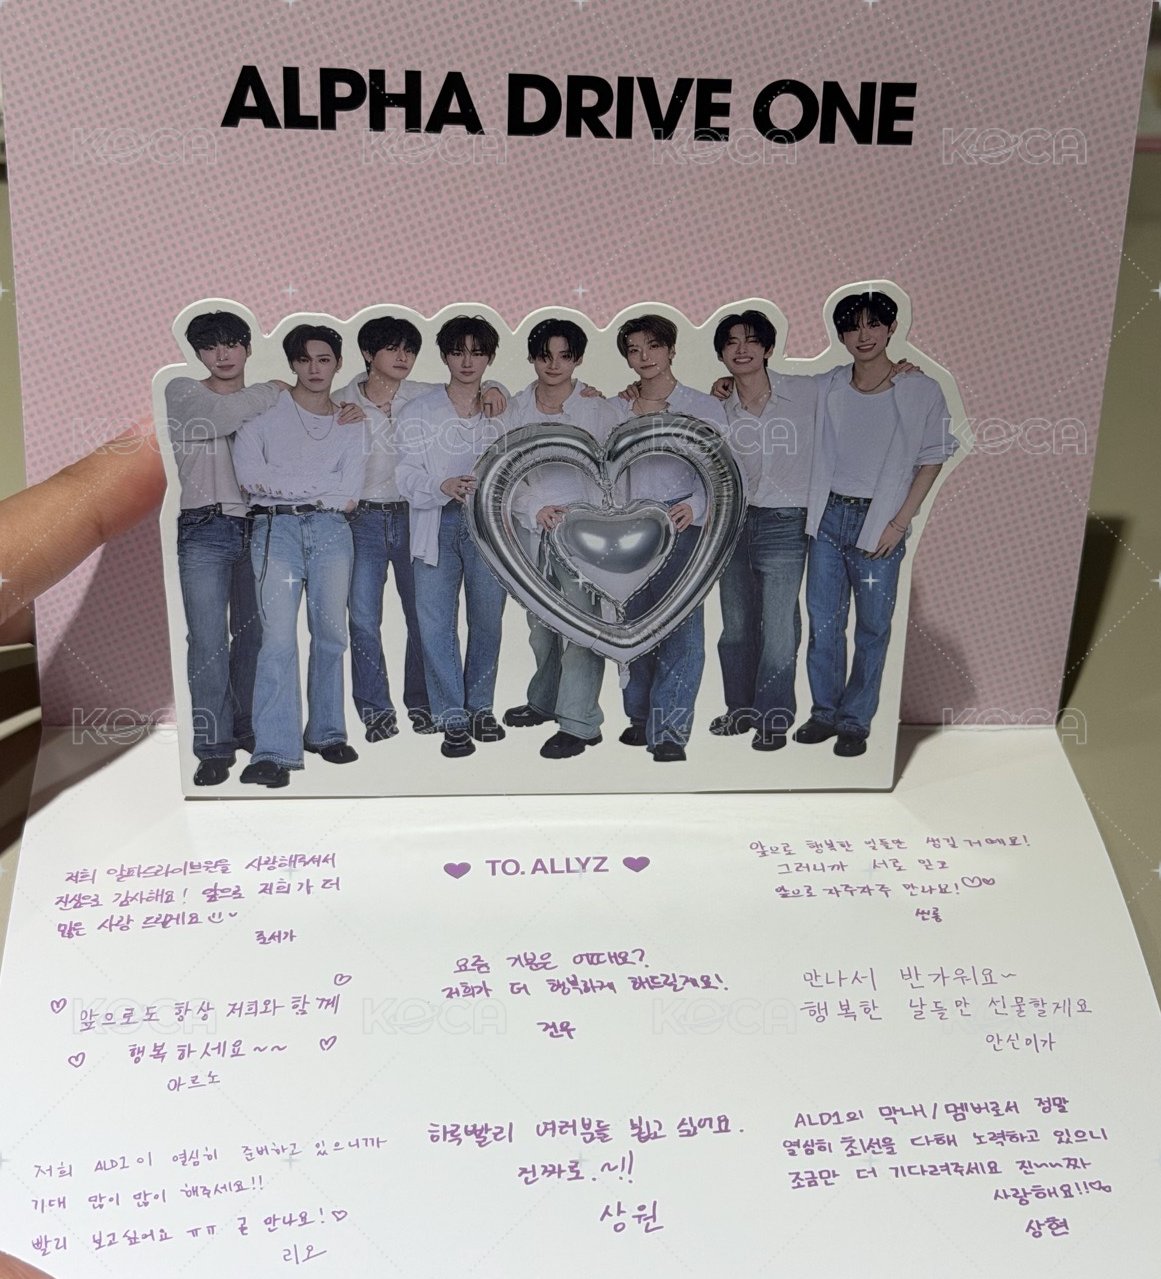 ALPHA DRIVE ONE
TO. ALLYZ
저희 알파드라이브원을 사랑해주셔서
진심으로 감사해요! 앞으로 저희가 더
많은 사랑 드릴게요
준서가
앞으로 행복한 일들만 생길 거예요!
그러니까 서로 믿고
앞으로 자주자주 만나요!
씬롱
요즘 기분은 어때요?
저희가 더 행복하게 해드릴게요!
건우
앞으로도 항상 저희와 함께
행복하세요~~
아르노
만나서 반가워요~
행복한 날들만 선물할게요
안신이가
저희 ALD1이 열심히 준비하고 있으니까
기대 많이 많이 해주세요!!
빨리 보고싶어요 ㅠㅠ 곧 만나요!
리오
하루빨리 여러분들 뵙고 싶어요.
진짜로.~!!
상원
ALD1의 막내/멤버로서 정말
열심히 최선을 다해 노력하고 있으니
조금만 더 기다려주세요 진~~짜
사랑해요!!
상현
KOCA